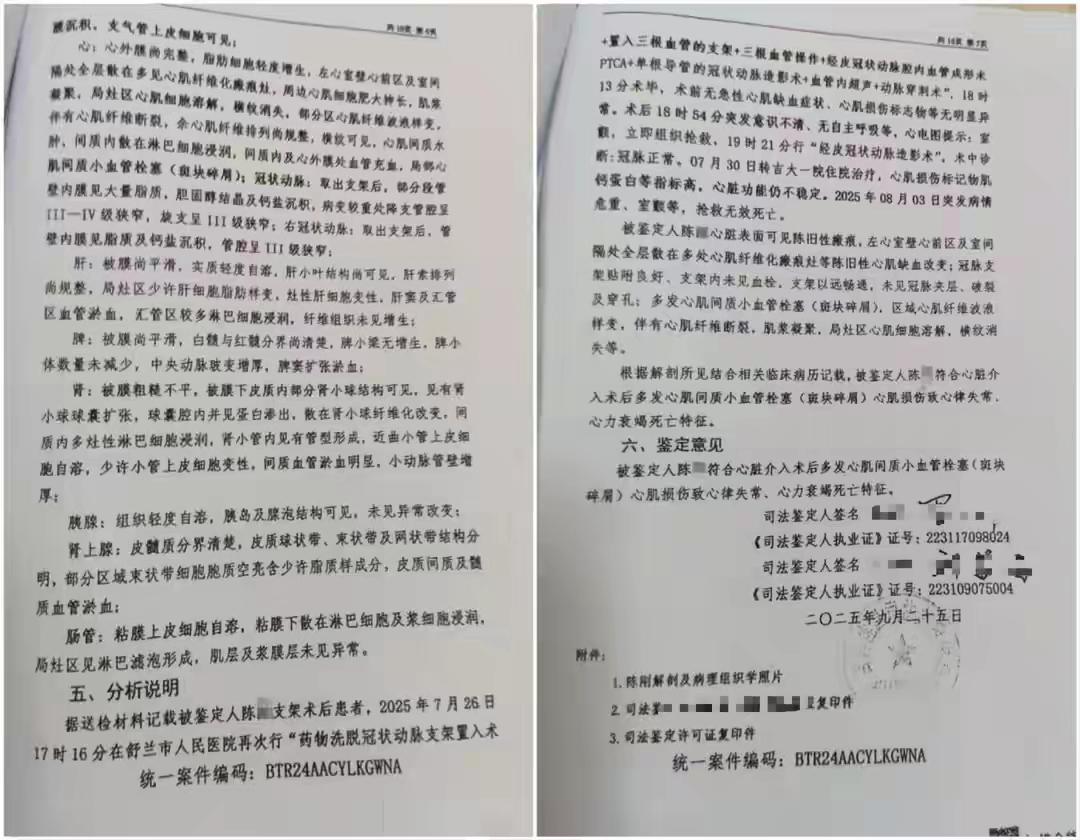 共10页 第6页
膜沉积，支气管上皮细胞可见；
心：心外膜尚完整，脂肪细胞轻度增生，左心室壁心前区及室间
隔处全层散在多见心肌纤维化瘢痕灶，周边心肌细胞肥大伸长，肌浆
凝聚，局灶区心肌细胞溶解，横纹消失，部分区心肌纤维波浪样变，
伴有心肌纤维断裂，余心肌纤维排列尚规整，横纹可见，心肌间质水
肿，间质内散在淋巴细胞浸润，间质内及心外膜处血管充血，局部心
肌间质小血管栓塞（斑块碎屑）；冠状动脉：取出支架后，部分段管
壁内膜见大量脂质，胆固醇结晶及钙盐沉积，病变较重处降支管腔呈
III—IV级狭窄，旋支呈III级狭窄；右冠状动脉：取出支架后，管
壁内膜见脂质及钙盐沉积，管腔呈III级狭窄；
肝：被膜尚平滑，实质轻度自溶，肝小叶结构尚可见，肝索排列
尚规整，局灶区少许肝细胞脂肪样变，灶性肝细胞变性，肝窦及汇管
区血管淤血，汇管区较多淋巴细胞浸润，纤维组织未见增生；
脾：被膜尚平滑，白髓与红髓分界尚清楚，脾小梁无增生，脾小
体数量未减少，中央动脉玻变增厚，脾窦扩张淤血；
肾：被膜粗糙不平，被膜下皮质内部分肾小球结构可见，见有肾
小球球囊扩张，球囊腔内并见蛋白渗出，散在肾小球纤维化改变，间
质内多灶性淋巴细胞浸润，肾小管内见有管型形成，近曲小管上皮细
胞自溶，少许小管上皮细胞变性，间质血管淤血明显，小动脉管壁增
厚；
胰腺：组织轻度自溶，胰岛及腺泡结构可见，未见异常改变；
肾上腺：皮髓质分界清楚，皮质球状带、束状带及网状带结构分
明，部分区域束状带细胞胞质空亮含少许脂质样成分，皮质间质及髓
质血管淤血；
肠管：粘膜上皮细胞自溶，粘膜下散在淋巴细胞及浆细胞浸润，
局灶区见淋巴滤泡形成，肌层及浆膜层未见异常。
五、分析说明
据送检材料记载被鉴定人陈支架术后患者，2025年7月26日
17时16分在舒兰市人民医院再次行“药物洗脱冠状动脉支架置入术
统一案件编码：BTR24AACYLKGWNA
共10页 第7页
+置入三根血管的支架+三根血管操作+经皮冠状动脉腔内血管成形术
PTCA+单根导管的冠状动脉造影术+血管内超声+动脉穿刺术”，18时
13分术毕，术前无急性心肌缺血症状、心肌损伤标志物等无明显异
常。术后18时54分突发意识不清、无自主呼吸等，心电图提示：室
颤，立即组织抢救，19时21分行“经皮冠状动脉造影术”，术中诊
断：冠脉正常。07月30日转吉大一院住院治疗，心肌损伤标记物肌
钙蛋白等指标高，心脏功能仍不稳定。2025年08月03日突发病情
危重、室颤等，抢救无效死亡。
被鉴定人陈心脏表面可见陈旧性瘢痕，左心室壁心前区及室间
隔处全层散在多处心肌纤维化瘢痕灶等陈旧性心肌缺血改变；冠脉支
架贴附良好、支架内未见血栓，支架以远畅通，未见冠脉夹层、破裂
及穿孔；多发心肌间质小血管栓塞（斑块碎屑），区域心肌纤维波浪
样变，伴有心肌纤维断裂，肌浆凝聚，局灶区心肌细胞溶解，横纹消
失等。
根据解剖所见结合相关临床病历记载，被鉴定人陈符合心脏介
入术后多发心肌间质小血管栓塞（斑块碎屑）心肌损伤致心律失常、
心力衰竭死亡特征。
六、鉴定意见
被鉴定人陈符合心脏介入术后多发心肌间质小血管栓塞（斑块
碎屑）心肌损伤致心律失常、心力衰竭死亡特征。
司法鉴定人签名
《司法鉴定人执业证》证号：223117098024
司法鉴定人签名
《司法鉴定人执业证》证号：223109075004
二〇二五年九月二十五日
附件：
1.陈刚解剖及病理组织学照片
2.司法复印件
3.司法鉴定许可证复印件
统一案件编码：BTR24AACYLKGWNA